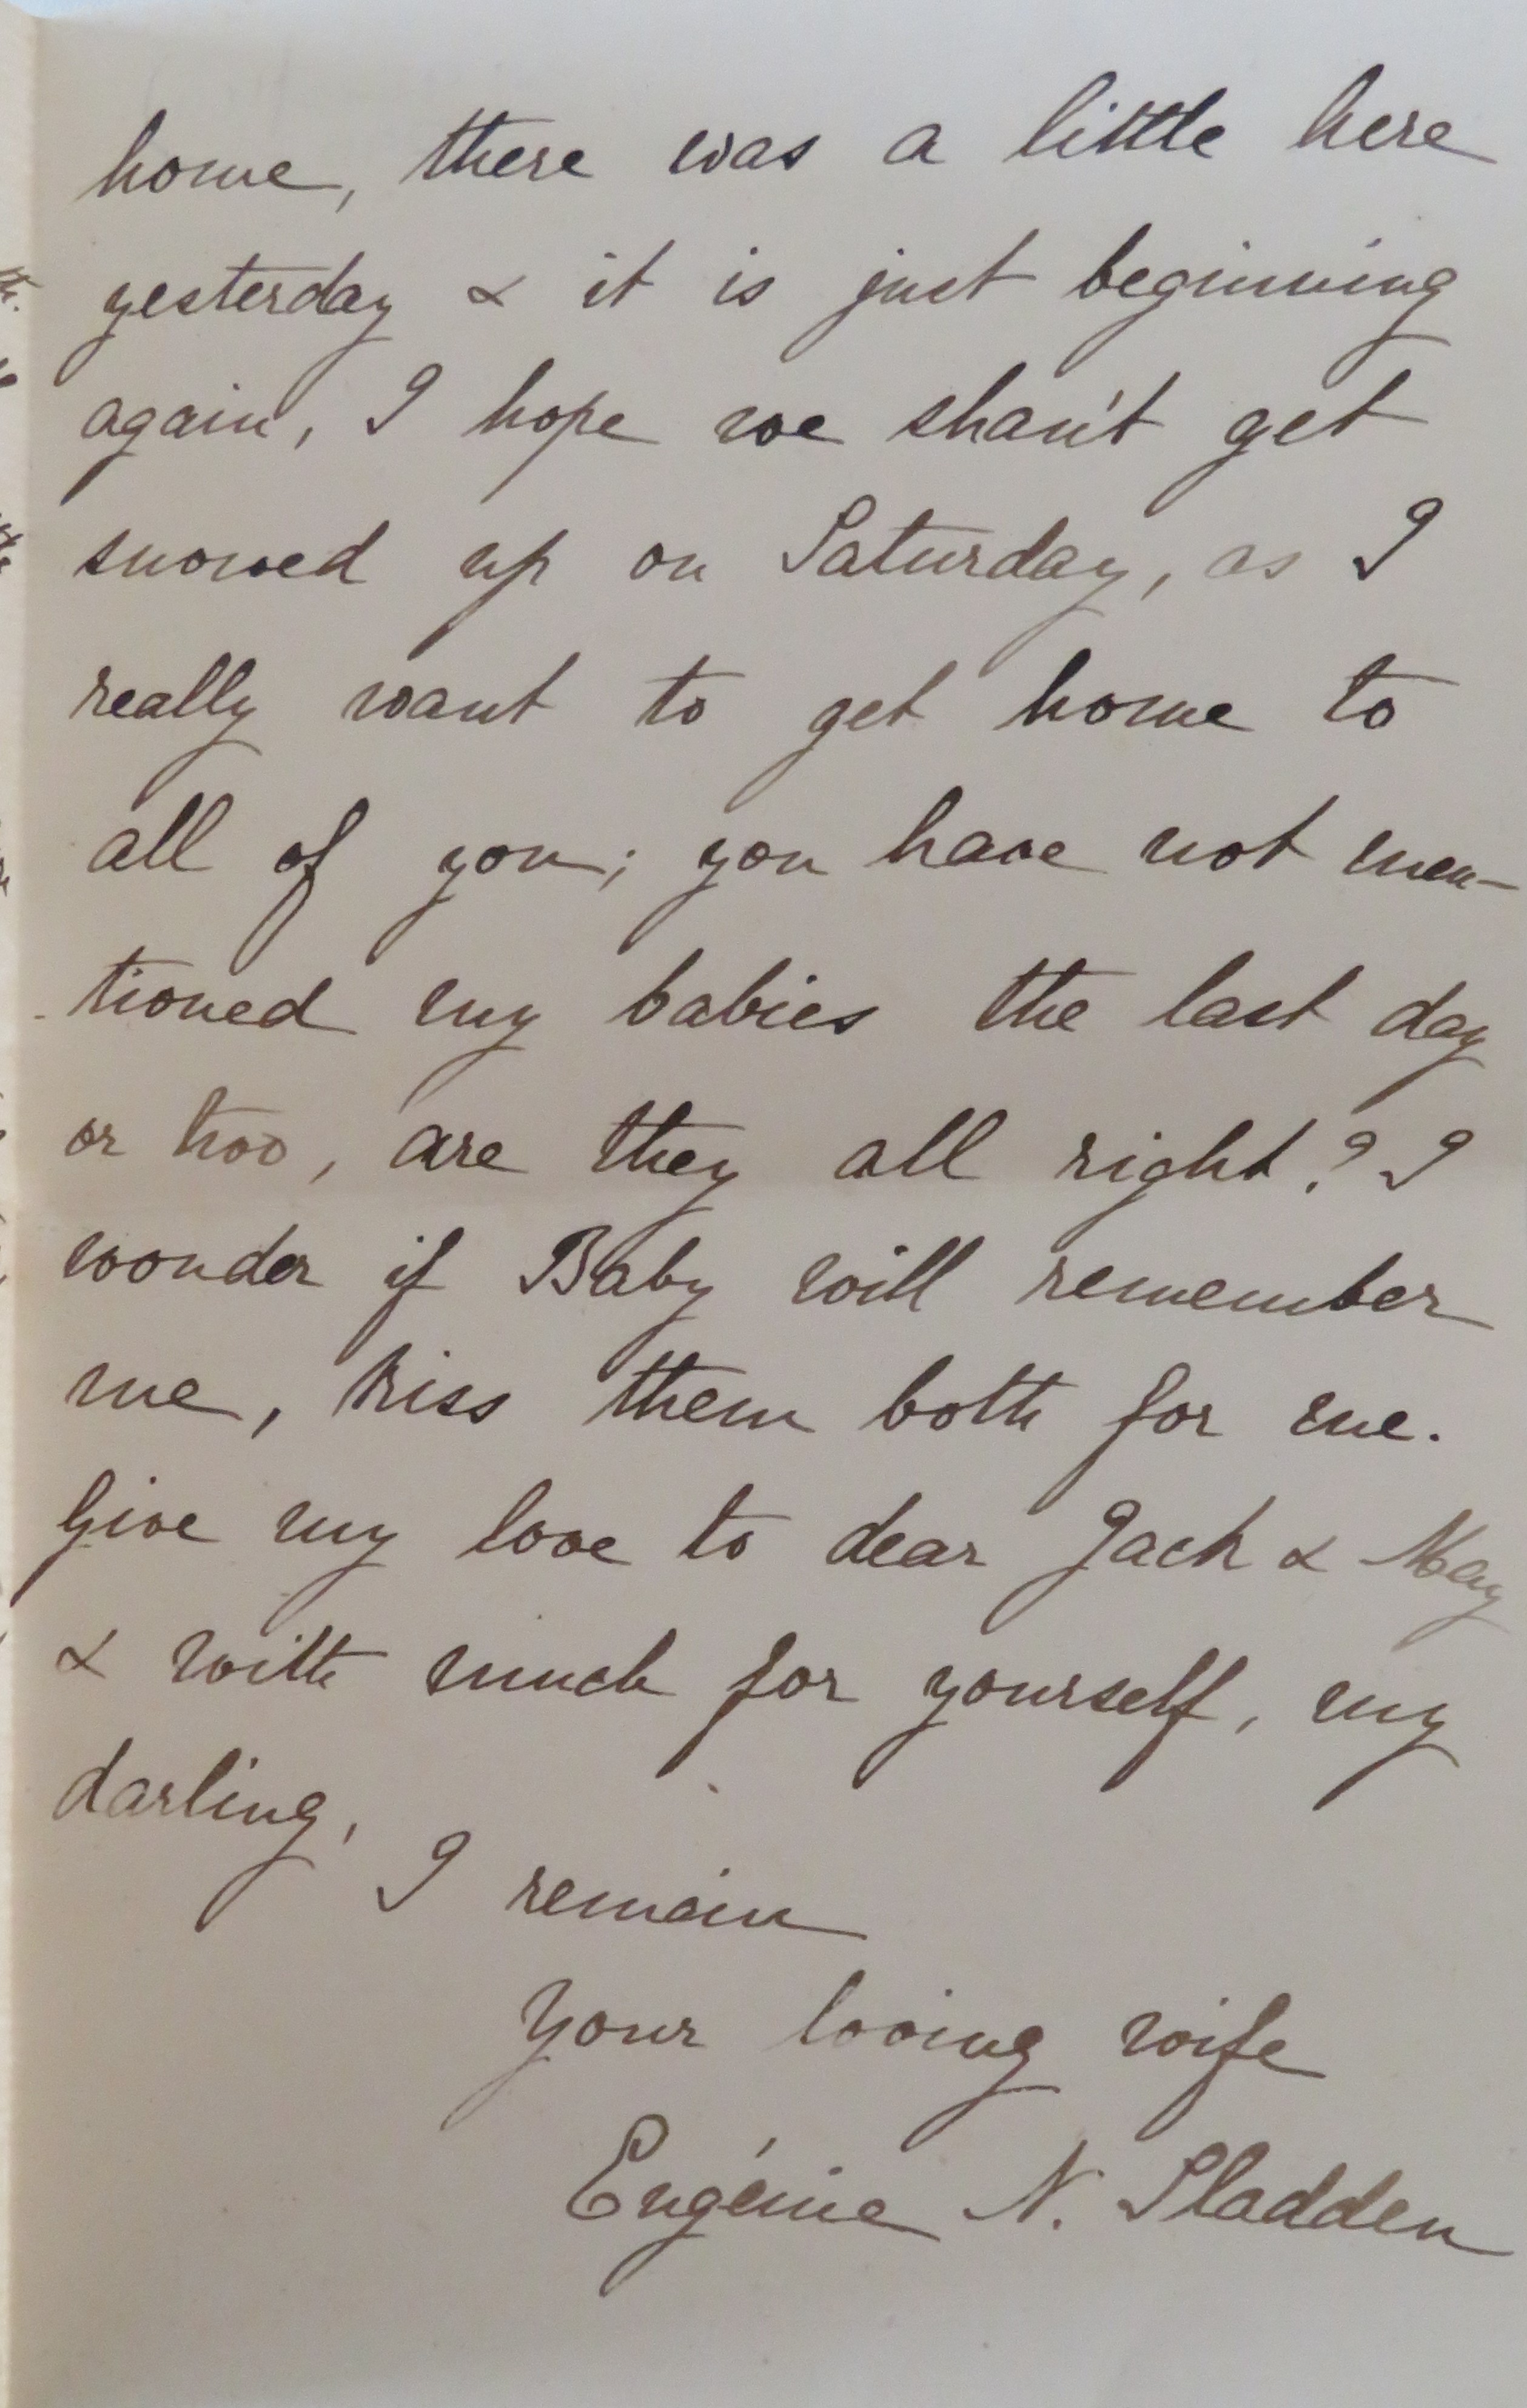 home, there was a little here
yesterday & it is just beginning
again, I hope we shan't get
snowed up on Saturday, as I
really want to get home to
all of you; you have not men-
tioned my babies the last day
or two, are they all right? I
wonder if Baby will remember
me, kiss them both for me.
Give my love to dear Jack & May
& with much for yourself, my
darling,
I remain
Your loving wife
Eugénie N. Sladden